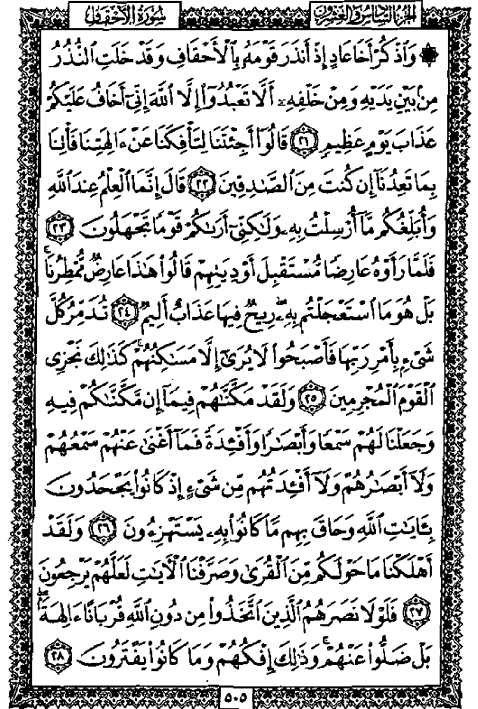 الجزء السادس والعشرون
سورة الأحقاف
۞ وَٱذْكُرْ أَخَا عَادٍ إِذْ أَنذَرَ قَوْمَهُۥ بِٱلْأَحْقَافِ وَقَدْ خَلَتِ ٱلنُّذُرُ
مِنۢ بَيْنِ يَدَيْهِ وَمِنْ خَلْفِهِۦٓ أَلَّا تَعْبُدُوٓا۟ إِلَّا ٱللَّهَ إِنِّىٓ أَخَافُ عَلَيْكُمْ
عَذَابَ يَوْمٍ عَظِيمٍ ٢١ قَالُوٓا۟ أَجِئْتَنَا لِتَأْفِكَنَا عَنْ ءَالِهَتِنَا فَأْتِنَا
بِمَا تَعِدُنَآ إِن كُنتَ مِنَ ٱلصَّٰدِقِينَ ٢٢ قَالَ إِنَّمَا ٱلْعِلْمُ عِندَ ٱللَّهِ
وَأُبَلِّغُكُم مَّآ أُرْسِلْتُ بِهِۦ وَلَٰكِنِّىٓ أَرَىٰكُمْ قَوْمًا تَجْهَلُونَ ٢٣
فَلَمَّا رَأَوْهُ عَارِضًا مُّسْتَقْبِلَ أَوْدِيَتِهِمْ قَالُوا۟ هَٰذَا عَارِضٌ مُّمْطِرُنَا ۚ
بَلْ هُوَ مَا ٱسْتَعْجَلْتُم بِهِۦ ۖ رِيحٌ فِيهَا عَذَابٌ أَلِيمٌ ٢٤ تُدَمِّرُ كُلَّ
شَىْءٍۭ بِأَمْرِ رَبِّهَا فَأَصْبَحُوا۟ لَا يُرَىٰٓ إِلَّا مَسَٰكِنُهُمْ ۚ كَذَٰلِكَ نَجْزِى
ٱلْقَوْمَ ٱلْمُجْرِمِينَ ٢٥ وَلَقَدْ مَكَّنَّٰهُمْ فِيمَآ إِن مَّكَّنَّٰكُمْ فِيهِ
وَجَعَلْنَا لَهُمْ سَمْعًا وَأَبْصَٰرًا وَأَفْـِٔدَةً فَمَآ أَغْنَىٰ عَنْهُمْ سَمْعُهُمْ
وَلَآ أَبْصَٰرُهُمْ وَلَآ أَفْـِٔدَتُهُم مِّن شَىْءٍ إِذْ كَانُوا۟ يَجْحَدُونَ
بِـَٔايَٰتِ ٱللَّهِ وَحَاقَ بِهِم مَّا كَانُوا۟ بِهِۦ يَسْتَهْزِءُونَ ٢٦ وَلَقَدْ
أَهْلَكْنَا مَا حَوْلَكُم مِّنَ ٱلْقُرَىٰ وَصَرَّفْنَا ٱلْءَايَٰتِ لَعَلَّهُمْ يَرْجِعُونَ
٢٧ فَلَوْلَا نَصَرَهُمُ ٱلَّذِينَ ٱتَّخَذُوا۟ مِن دُونِ ٱللَّهِ قُرْبَانًا ءَالِهَةًۢ ۖ
بَلْ ضَلُّوا۟ عَنْهُمْ ۚ وَذَٰلِكَ إِفْكُهُمْ وَمَا كَانُوا۟ يَفْتَرُونَ ٢٨
٥٠٥